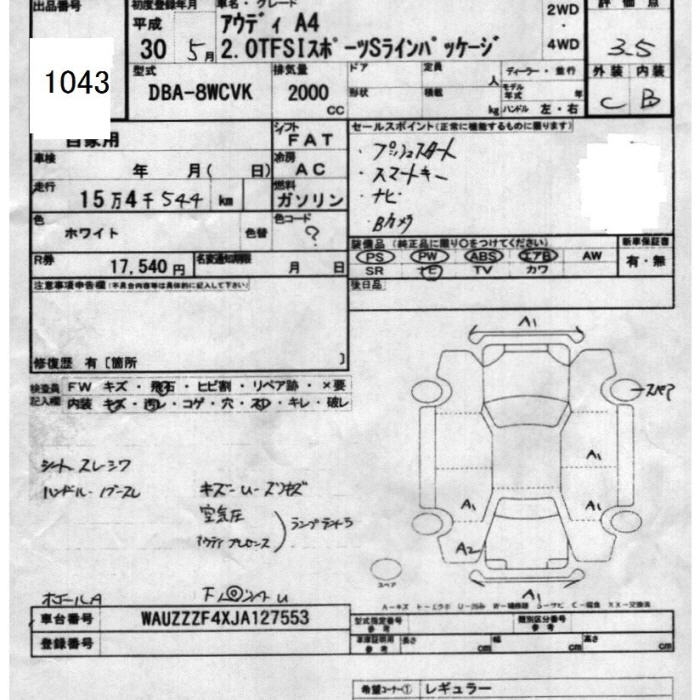 出品番号 初度登録年月 車名・グレード 評価点
平成 アウディ A4 2WD
30 5月 2.0TFSIスポーツSラインパッケージ ・4WD 3.5
1043
型式 排気量 ドア 定員 人 ディーラー・並行 外装 内装
DBA-8WCVK 2000 CC 形状 積載 kg モデル年式 年 ハンドル 左・右 C B
自家用 シフト FAT セールスポイント(正常に機能するものに限ります)
車検 年 月( 日) 冷房 AC
・プッシュスタート
・スマートキー
・ナビ
・Bカメラ
走行 15万4千544 km 燃料 ガソリン
色 ホワイト 色替 色コード ?
装備品 (純正品に限り○をつけてください) 新車保証書
PS PW ABS エアB AW 有・無
SR ナビ TV カワ
R券 17,540円 名変通知期限 月 日
後日品
注意事項申告欄(不具合内容等は具体的に記入して下さい)
修復歴 有〔箇所 〕
検査員記入欄 FW キズ・飛石・ヒビ割・リペア跡・×要
内装 キズ・汚レ・コゲ・穴・スレ・キレ・破レ
シート スレシワ
ハンドル・ノブスレ
キズ
空気圧
ランプ
A1
A1
A1
A1
A1
A2
A1
スペア
A-キズ
車台番号 WAUZZZF4XJA127553
登録番号
型式指定番号 参考 類別区分番号 参考
車庫証明用参考 長さ cm 幅 cm 高さ cm
希望コーナー① レギュラー